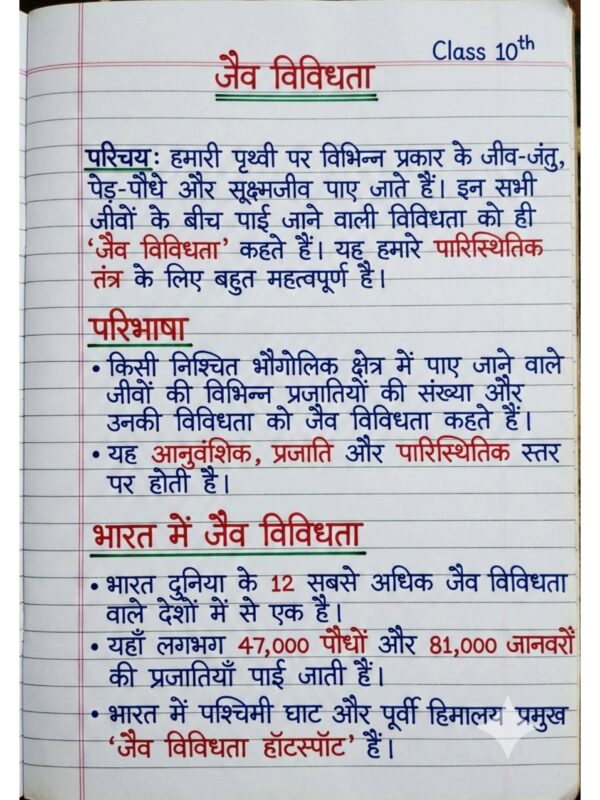 Class 10th
जैव विविधता
परिचय: हमारी पृथ्वी पर विभिन्न प्रकार के जीव-जंतु,
पेड़-पौधे और सूक्ष्मजीव पाए जाते हैं। इन सभी
जीवों के बीच पाई जाने वाली विविधता को ही
‘जैव विविधता’ कहते हैं। यह हमारे पारिस्थितिक
तंत्र के लिए बहुत महत्वपूर्ण है।
परिभाषा
• किसी निश्चित भौगोलिक क्षेत्र में पाए जाने वाले
जीवों की विभिन्न प्रजातियों की संख्या और
उनकी विविधता को जैव विविधता कहते हैं।
• यह आनुवंशिक, प्रजाति और पारिस्थितिक स्तर
पर होती है।
भारत में जैव विविधता
• भारत दुनिया के 12 सबसे अधिक जैव विविधता
वाले देशों में से एक है।
• यहाँ लगभग 47,000 पौधों और 81,000 जानवरों
की प्रजातियाँ पाई जाती हैं।
• भारत में पश्चिमी घाट और पूर्वी हिमालय प्रमुख
‘जैव विविधता हॉटस्पॉट’ हैं।